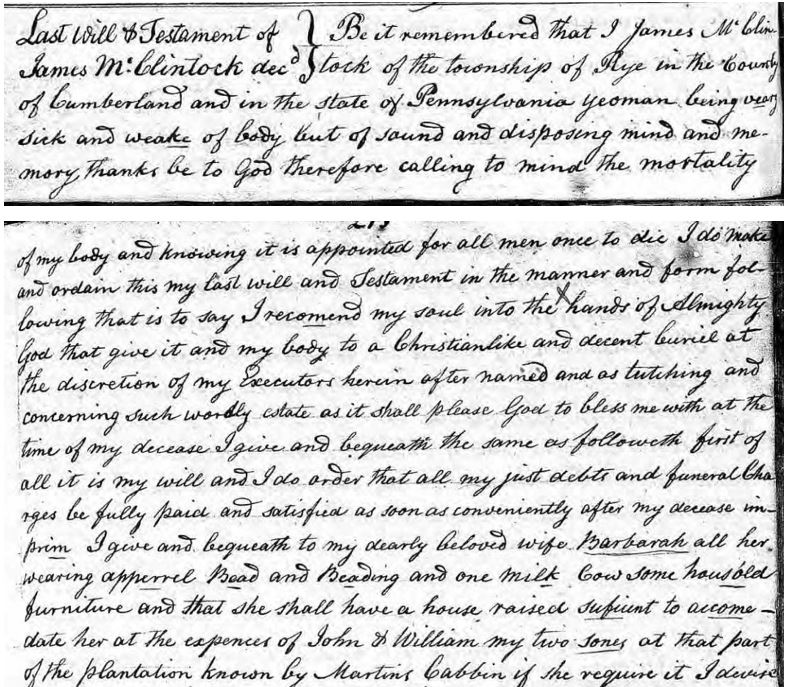 Last Will & Testament of } Be it remembered that I James McClin-
James McClintock decd } tock of the township of Rye in the County
of Cumberland and in the state of Pennsylvania yeoman being veary
sick and weake of body but of sound and disposing mind and me-
mory thanks be to God therefore calling to mind the mortality
of my body and knowing it is appointed for all men once to die I do make
and ordain this my last will and Testament in the manner and form fol-
lowing that is to say I recomend my soul into the hands of Almighty
God that give it and my body to a Christianlike and decent buriel at
the discretion of my Executors herein after named and as tutching and
concerning such wordly estate as it shall please God to bless me with at the
time of my decease I give and bequeath the same as followeth first of
all it is my will and I do order that all my just debts and funeral Cha
rges be fully paid and satisfied as soon as conveniently after my decease im-
prim I give and bequeath to my dearly beloved wife Barbarah all her
wearing apperrel Bead and Beading and one milk Cow some housold
furniture and that she shall have a house raised sufient to accome-
date her at the expences of John & William my two sones at that part
of the plantation known by Martins Cabbin if she require it I devise